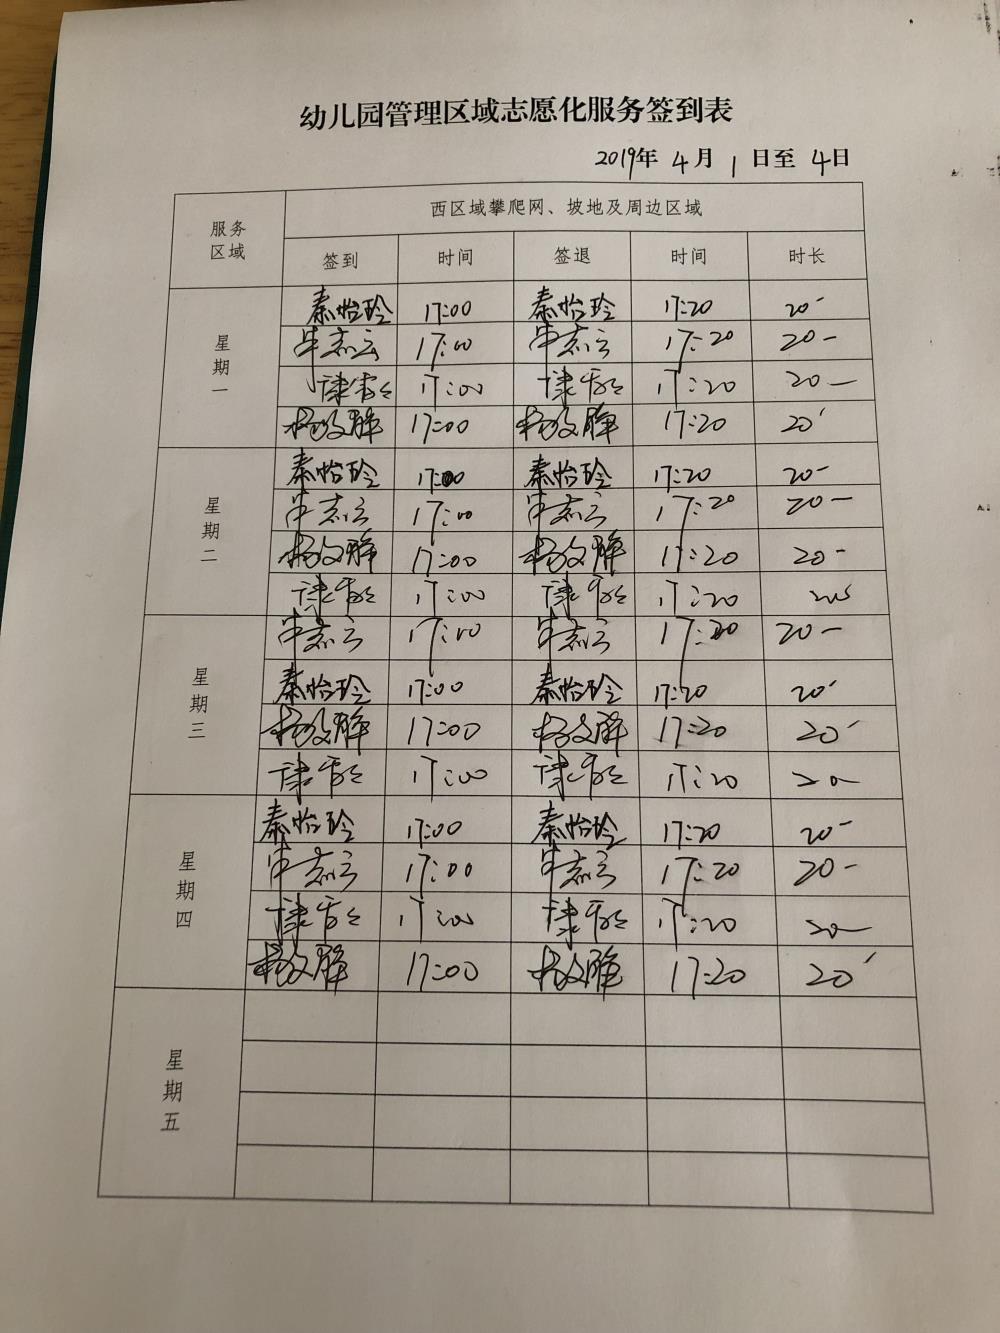 幼儿园管理区域志愿化服务签到表
2019年 4月 1日至 4日
服务区域 西区域攀爬网、坡地及周边区域
签到 时间 签退 时间 时长
星期一
秦怡玲 17:00 秦怡玲 17:20 20'
牛志云 17:00 牛志云 17:20 20'
17:00 17:20 20'
杨文 17:00 杨文 17:20 20'
星期二
秦怡玲 17:00 秦怡玲 17:20 20'
牛志云 17:00 牛志云 17:20 20'
杨文 17:00 杨文 17:20 20'
17:00 17:20
星期三
牛志云 17:00 牛志云 17:20 20'
秦怡玲 17:00 秦怡玲 17:20 20'
杨文 17:00 杨文 17:20 20'
17:00 17:20 20
星期四
秦怡玲 17:00 秦怡玲 17:20 20'
牛志云 17:00 牛志云 17:20 20'
17:00 17:20 20
杨文 17:00 杨文 17:20 20'
星期五